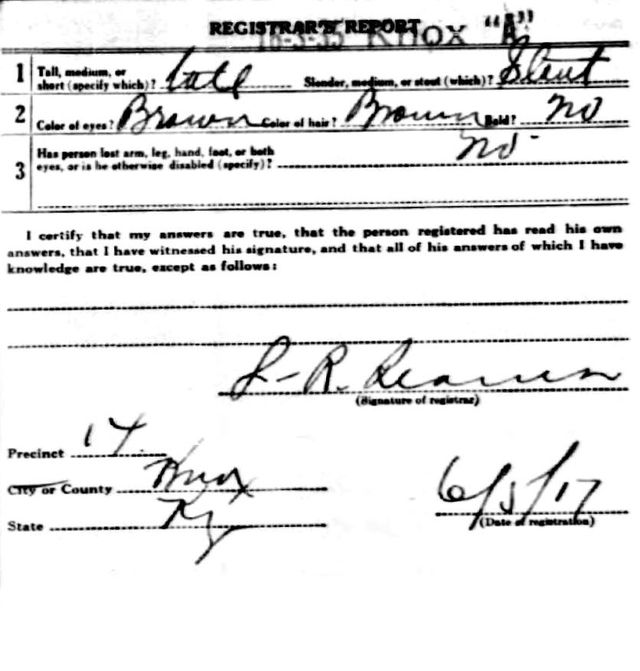 REGISTRAR'S REPORT
16-3-33 KNOX "A"
1 Tall, medium, or short (specify which)? tall Slender, medium, or stout (which)? Stout
2 Color of eyes? Brown Color of hair? Brown Bald? No
3 Has person lost arm, leg, hand, foot, or both
eyes, or is he otherwise disabled (specify)? No
I certify that my answers are true, that the person registered has read his own
answers, that I have witnessed his signature, and that all of his answers of which I have
knowledge are true, except as follows:
R.
(Signature of registrar)
Precinct 14.
City or County Knox
State Ky
6/5/17
(Date of registration)